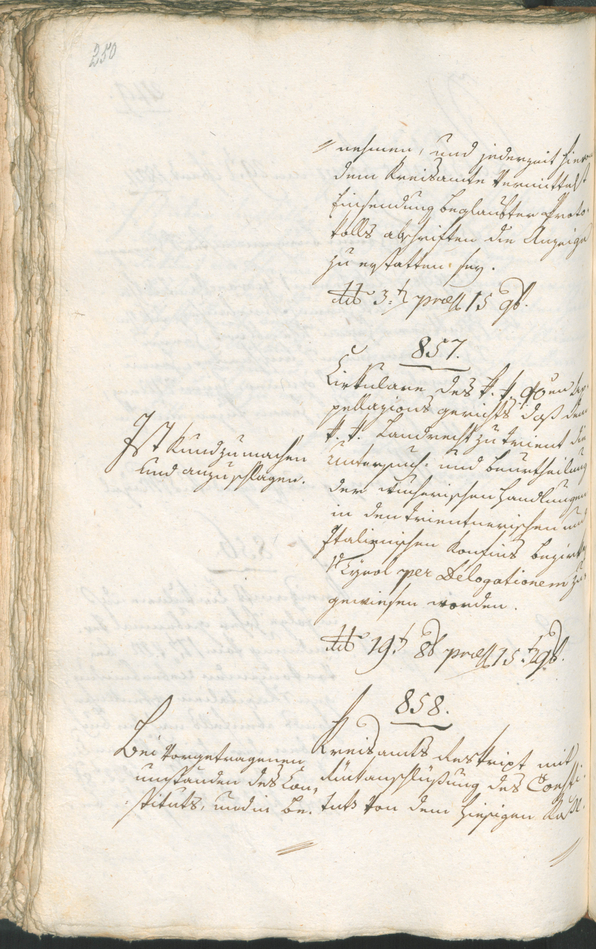 250
nehmen, und jederzeit hier
dem Kreisamte vermittels
Einsendung beglaubter Proto¬
kolls abschriften die Anzeige
zu erstatten sey.
dto 3.t præs 15 9b.
857.
Cirkulare des k. k. Ap¬
pellazions gerichts daß dem
k. k. Landrecht zu Trient die
Untersuch- und Beurtheilung
der wucherischen Handlungen
in den trientnerischen und
Italienischen Konfins bezirk
Tyrol per Delegationem zu¬
gewiesen worden.
Ist Kund zu machen
und anzuschlagen.
dto 19.t 8b præs 15.t 9b.
858.
Kreisamts Reskript mit
Rückanschlüßung des Consti¬
tuts von dem hiesigen
Bei vorgetragenen
umständen des Con¬
stituts, und in be.